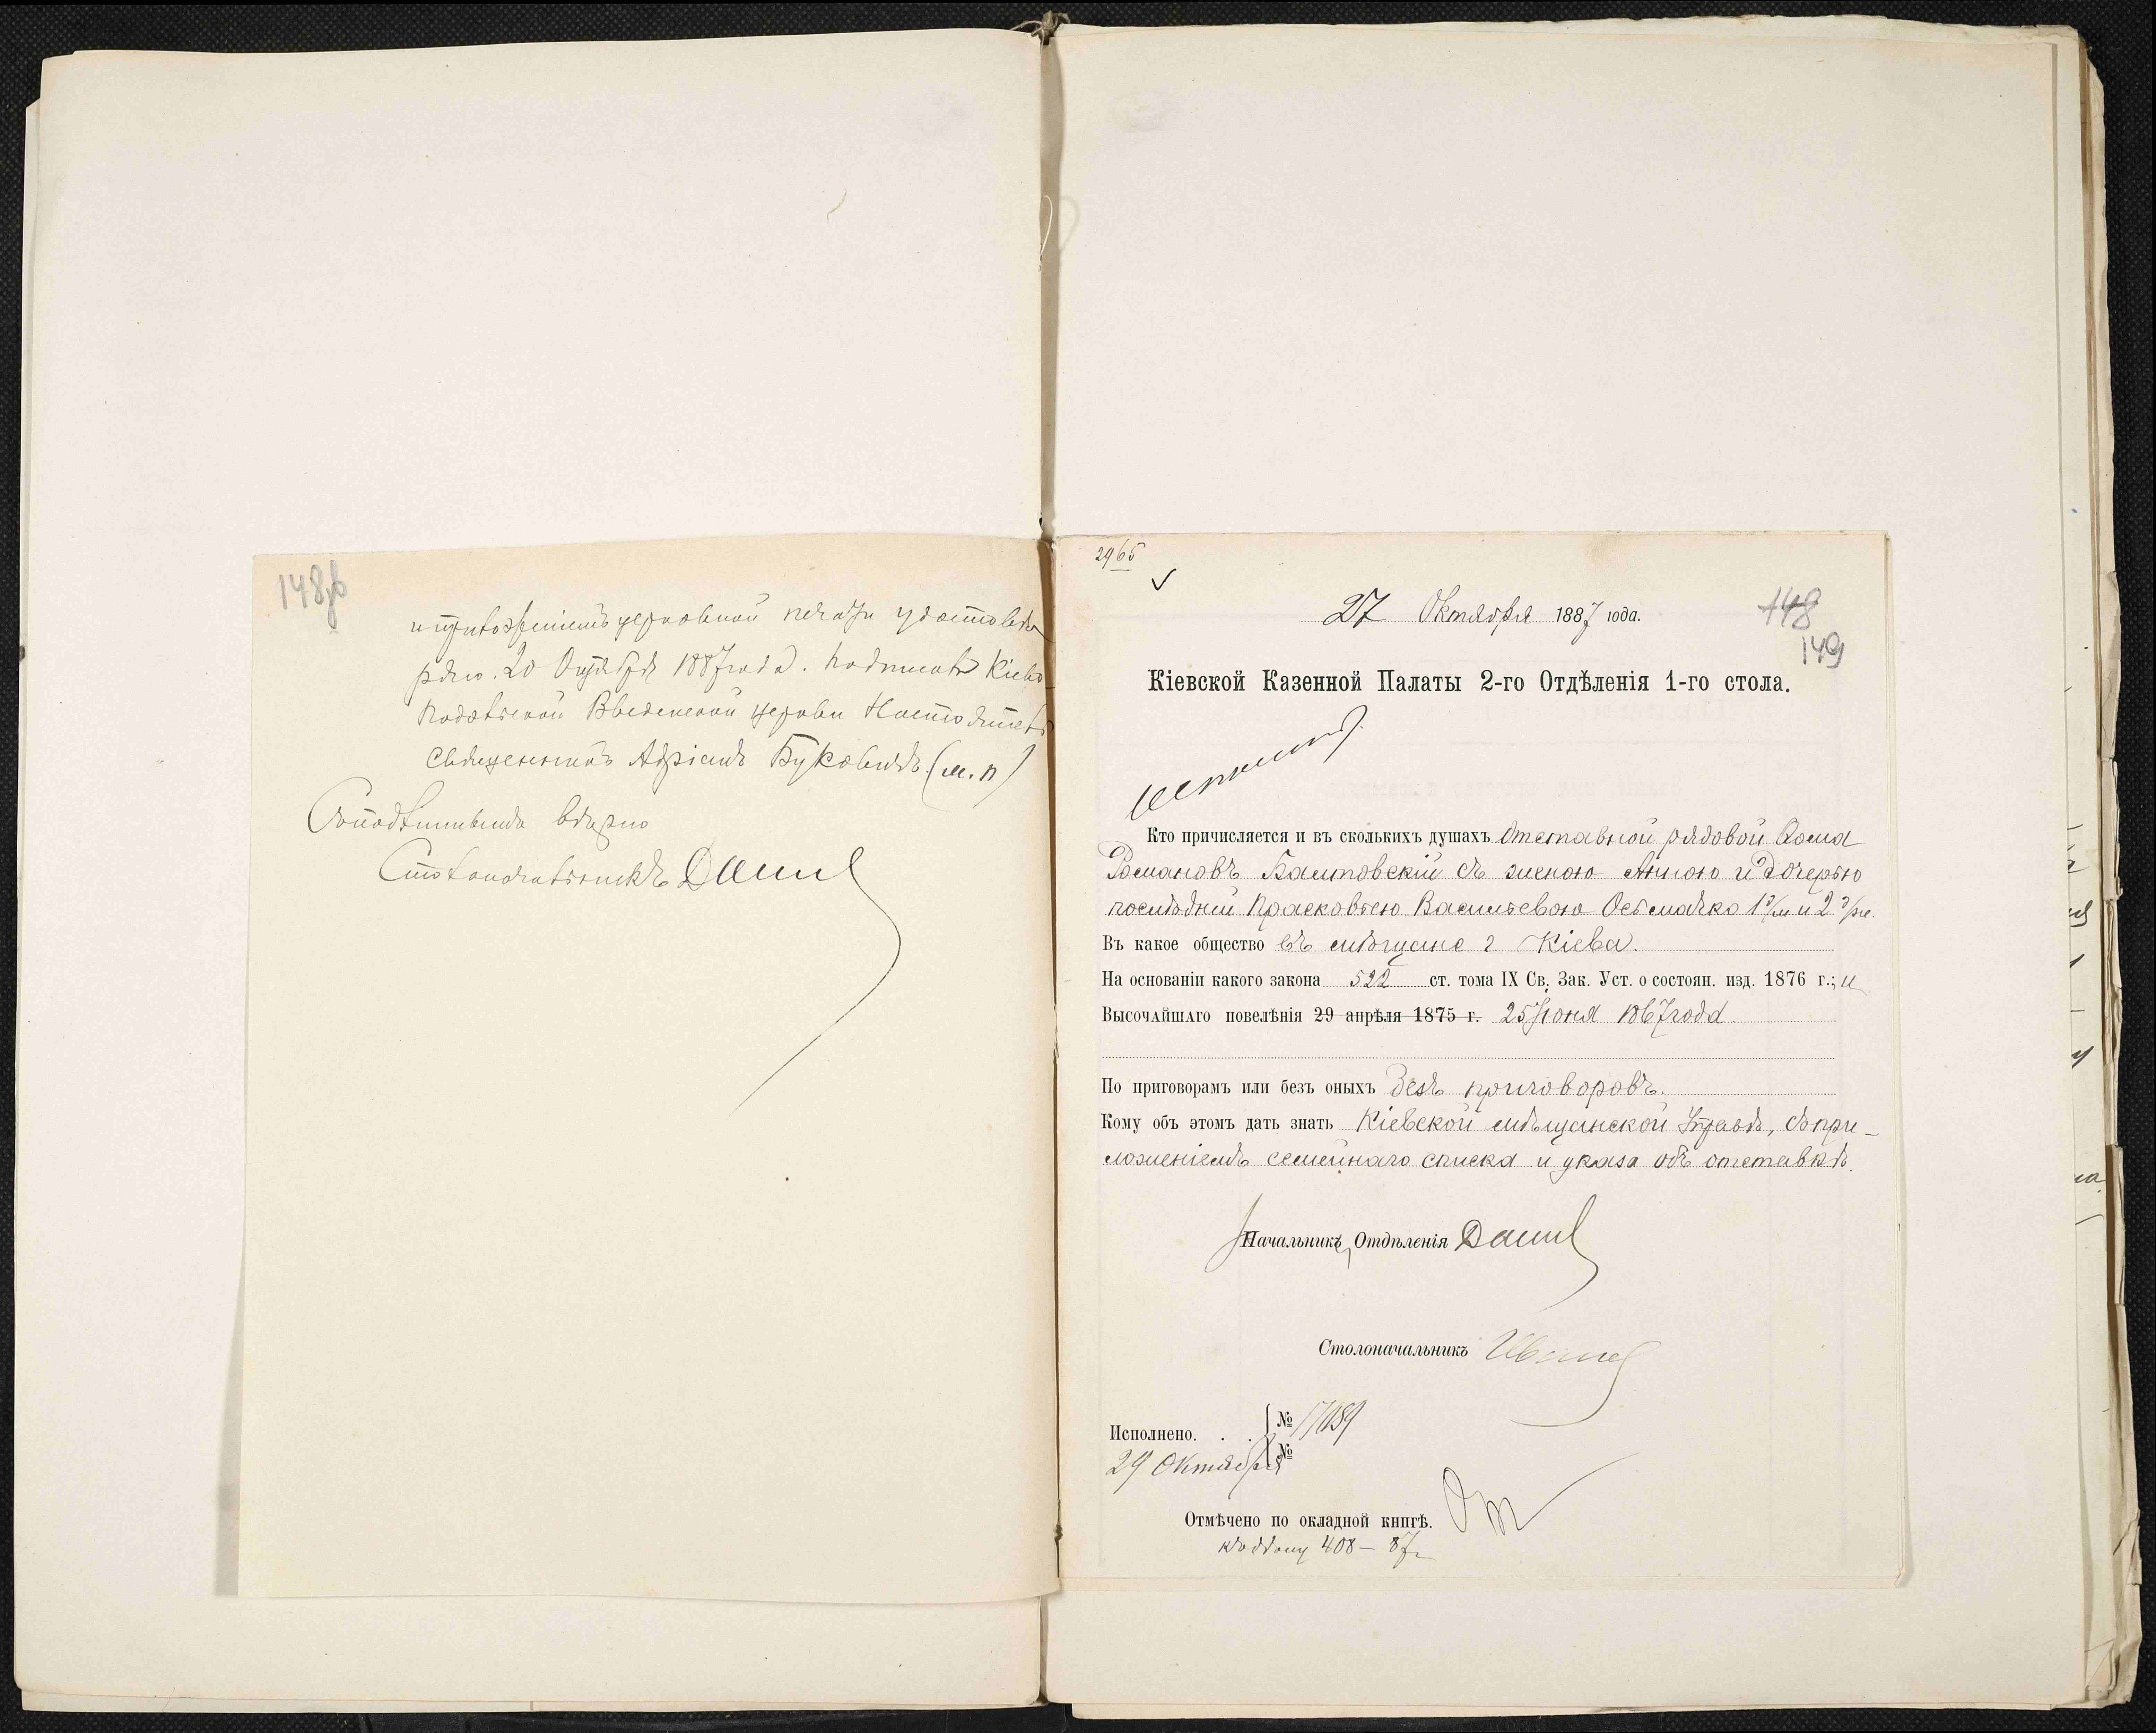 148об
и приложеніемъ церковной печати удостовѣ
ряю. 20 Октября 1887 года. Подписалъ Кіево
Подольской Введенской церкви Настоятель
священникъ Адріанъ Буковичъ. (м. п)
Съ подлиннымъ вѣрно
Столоначальникъ
2965
27 Октября 1887 года.
148
149
Кіевской Казенной Палаты 2-го Отдѣленія 1-го стола.
Кто причисляется и въ сколькихъ душахъ Отставной рядовой Ѳома
Романовъ Балтовскій съ женою Анною и дочерью
послѣдней Прасковьею Васильевою Осьмачко 1 д/м и 2 д/ж.
Въ какое общество въ мѣщане г Кіева.
На основаніи какого закона 522 ст. тома IX Св. Зак. Уст. о состоян. изд. 1876 г.; и
Высочайшаго повелѣнія 29 апрѣля 1875 г. 25 Іюня 1867 года
По приговорамъ или безъ оныхъ безъ приговоровъ.
Кому объ этомъ дать знать Кіевской мѣщанской Управѣ, съ при-
ложеніемъ семейнаго списка и указа объ отставкѣ.
Начальникъ Отдѣленія
Столоначальникъ
Исполнено. . . № 17089
29 Октября №
Отмѣчено по окладной книгѣ.
408 – 87 г